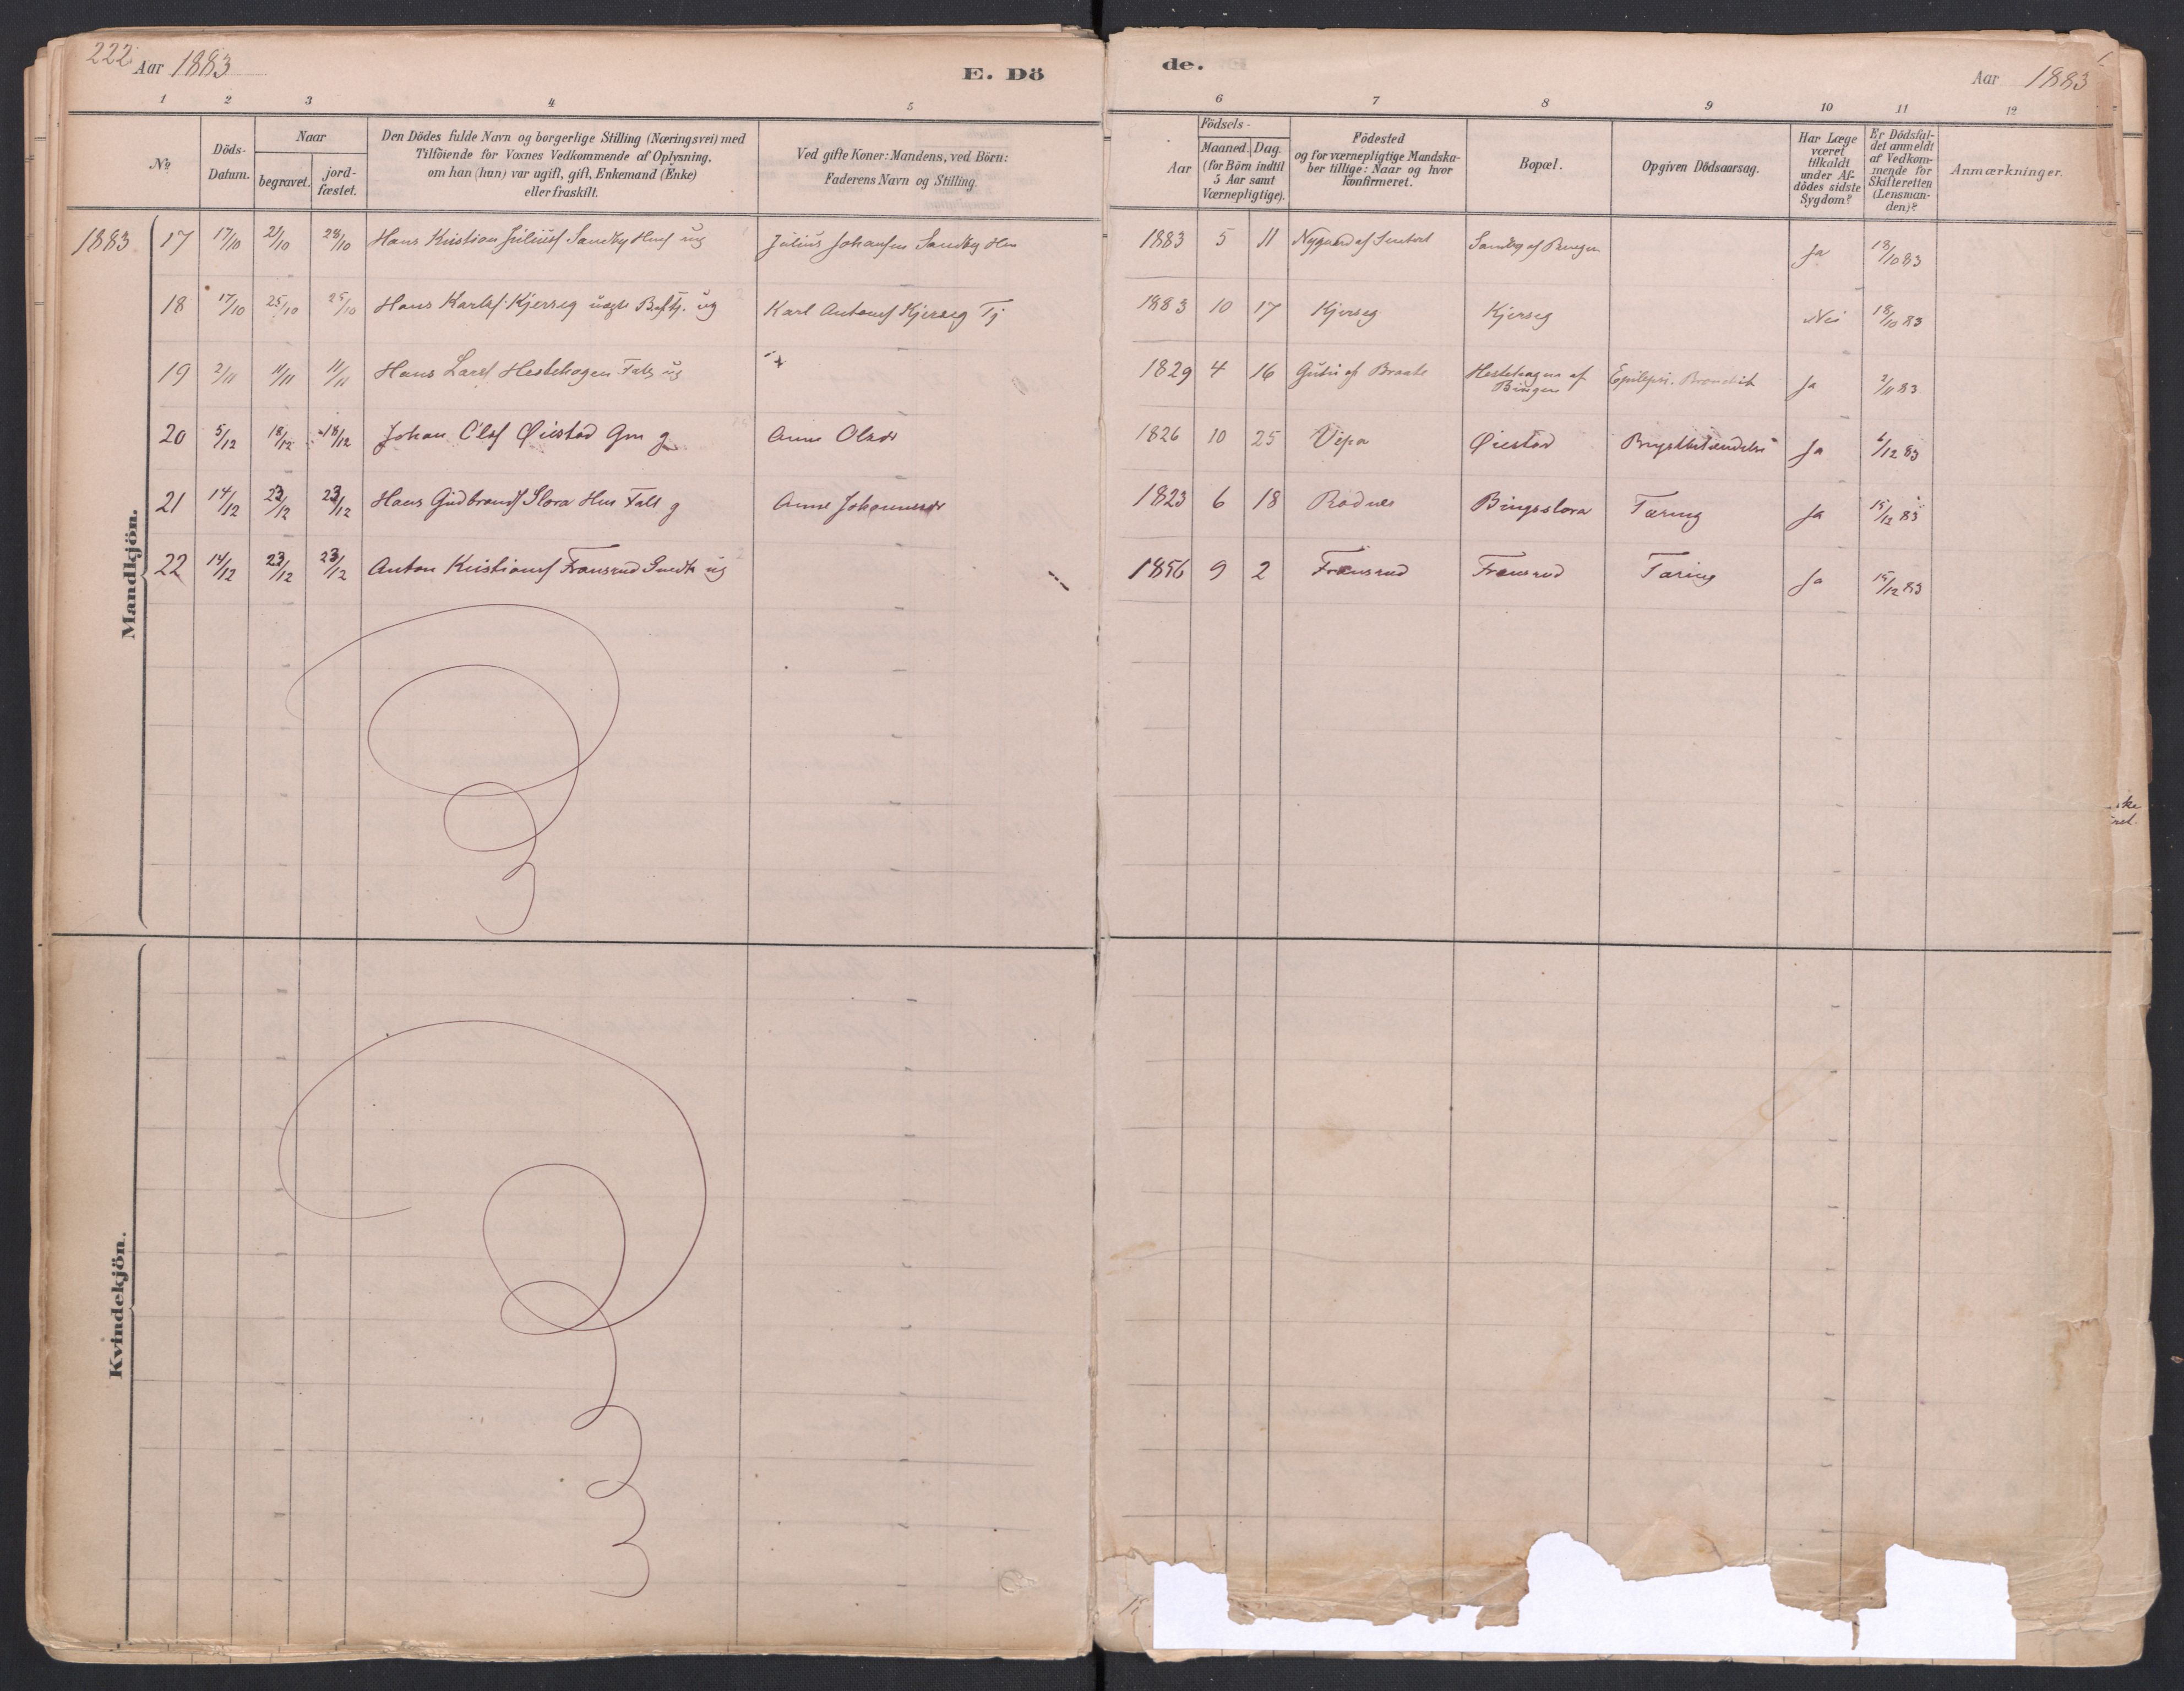 222 Aar 1883
E. Dö
de.
Aar 1883
1 2 3 4 5 6 7 8 9 10 11 12
No.
Döds-
Datum.
Naar
begravet.
jord-
fæstet.
Den Dödes fulde Navn og borgerlige Stilling (Næringsvei) med
Tilföiende for Voxnes Vedkommende af Oplysning,
om han (hun) var ugift, gift, Enkemand (Enke)
eller fraskilt.
Ved gifte Koner: Mandens, ved Börn:
Faderens Navn og Stilling.
Födsels-
Aar
Maaned. Dag.
(for Börn indtil
5 Aar samt
Værnepligtige).
Födested
og for værnepligtige Mandska-
ber tillige: Naar og hvor
konfirmeret.
Bopæl.
Opgiven Dödsaarsag.
Har Læge
været
tilkaldt
under Af-
dödes sidste
Sygdom?
Er Dödsfal-
det anmeldt
af Vedkom-
mende for
Skifteretten
(Lensman-
den)?
Anmærkninger.
Mandkjön.
1883 17 17/10 21/10 28/10 Hans Kristian Juliusf Sandby Husf ug Julius Johansen Sandby Hm 1883 5 11 Nygaard af Sandby af Bingen Ja 18/10 83
18 17/10 25/10 25/10 Hans Karlsf. Kjerseg uægte ug Karl Antonsf Kjerseg Tj 1883 10 17 Kjerseg Kjerseg Nei 18/10 83
19 2/11 11/11 11/11 Hans Larsf Hestehagen Fatt ug 1829 4 16 Gutu af Braate Hestehagen af Epilepsi. Bronchit Ja 2/11 83
Bingen
20 5/12 18/12 18/12 Johan Olsf Øiestad Gm g Anne Olsdr 1826 10 25 Vepa Øiestad Brystbetændelse Ja 6/12 83
21 14/12 23/12 23/12 Hans Gudbrandsf Slora Hm Fatt g Anne Johannesdr 1823 6 18 Rodnes Bingsslora Tæring Ja 15/12 83
22 14/12 23/12 23/12 Anton Kristiansf Fransrud ug 1856 9 2 Fransrud Fransrud Tæring Ja 15/12 83
Kvindekjön.